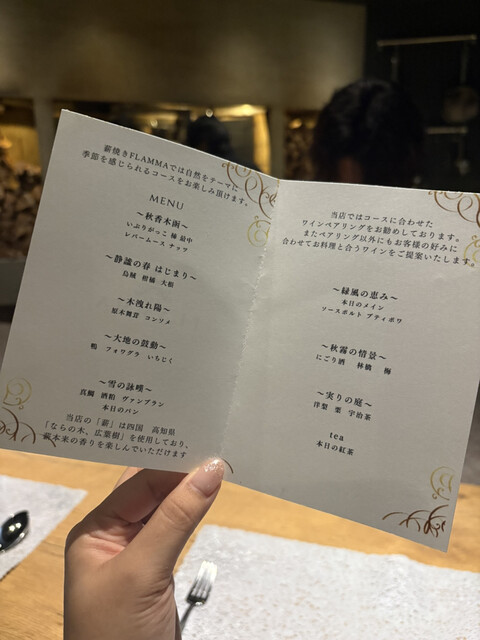 薪焼きFLAMMAでは自然をテーマに
季節を感じられるコースをお楽しみ頂けます。
MENU
～秋香木函～
いぶりがっこ 柿 最中
レバームース ナッツ
～静謐の春 はじまり～
烏賊 柑橘 大根
～木洩れ陽～
原木舞茸 コンソメ
～大地の鼓動～
鴨 フォワグラ いちじく
～雪の詠嘆～
真鯛 酒粕 ヴァンブラン
本日のパン
当店の「薪」は四国 高知県
「ならの木、広葉樹」を使用しており、
薪本来の香りを楽しんでいただけます
当店ではコースに合わせた
ワインペアリングをお勧めしております。
またペアリング以外にもお客様の好みに
合わせてお料理と合うワインをご提案いたします。
～緑風の恵み～
本日のメイン
ソースポルト プティポワ
～秋霧の情景～
にごり酒 林檎 梅
～実りの庭～
洋梨 栗 宇治茶
tea
本日の紅茶